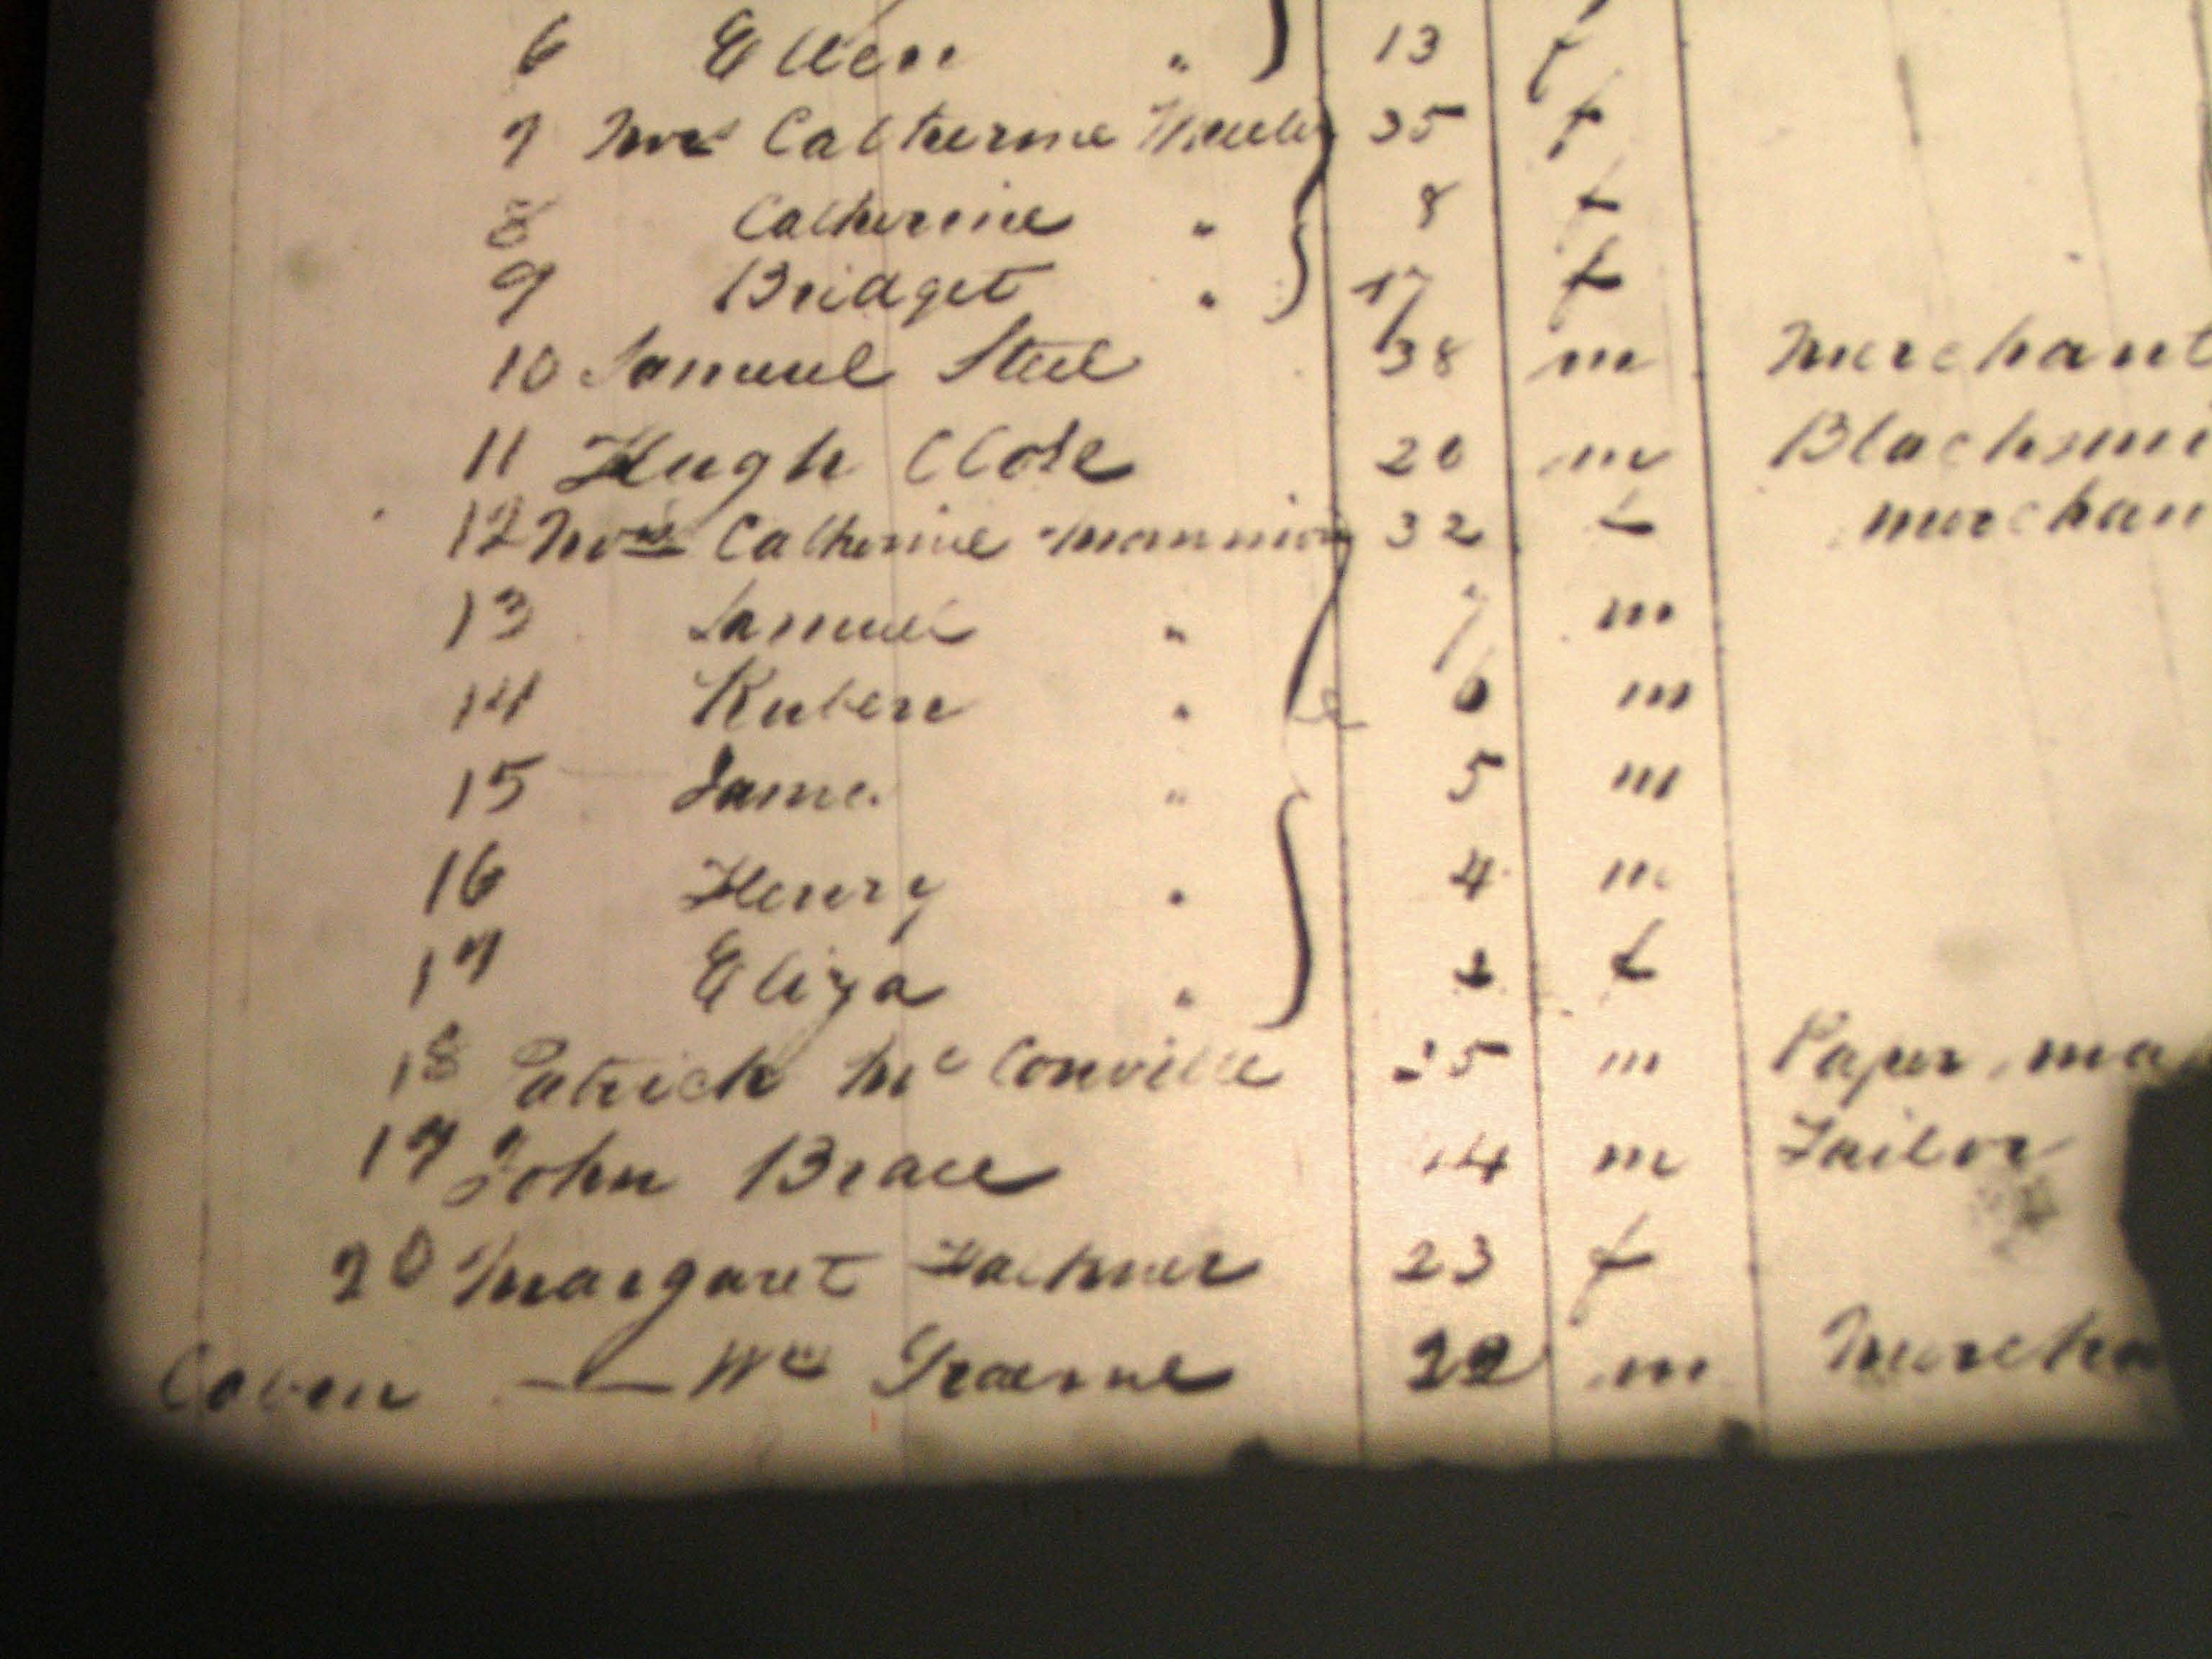 6 Ellen " 13 f
7 Mrs Catherine 35 f
8 Catherine " 8 f
9 Bridget " 17 f
10 Samuel Steel 38 m Merchant
11 Hugh Close 20 m Blacksmi
12 Mrs Catherine Mannion 32 f merchan
13 Samuel " 7 m
14 Ruben " 6 m
15 James " 5 m
16 Henry " 4 m
17 Eliza " f
18 Patrick Mc Conville 25 m Paper ma
19 John Brace 14 m Tailor
20 Margaret 23 f
Cabin — Wm Graeme 22 m Mercha